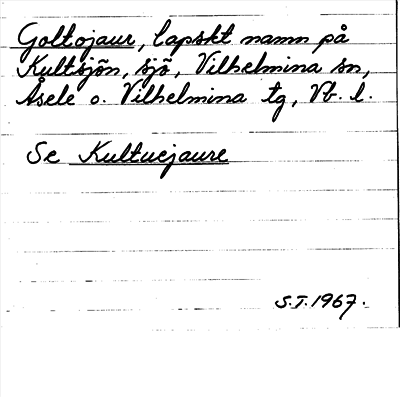 Goltojaur, lapskt namn på
Kultsjön, sjö, Vilhelmina sn,
Åsele o. Vilhelmina tg, Vb. l.
Se Kultuejaure
S.T. 1967.